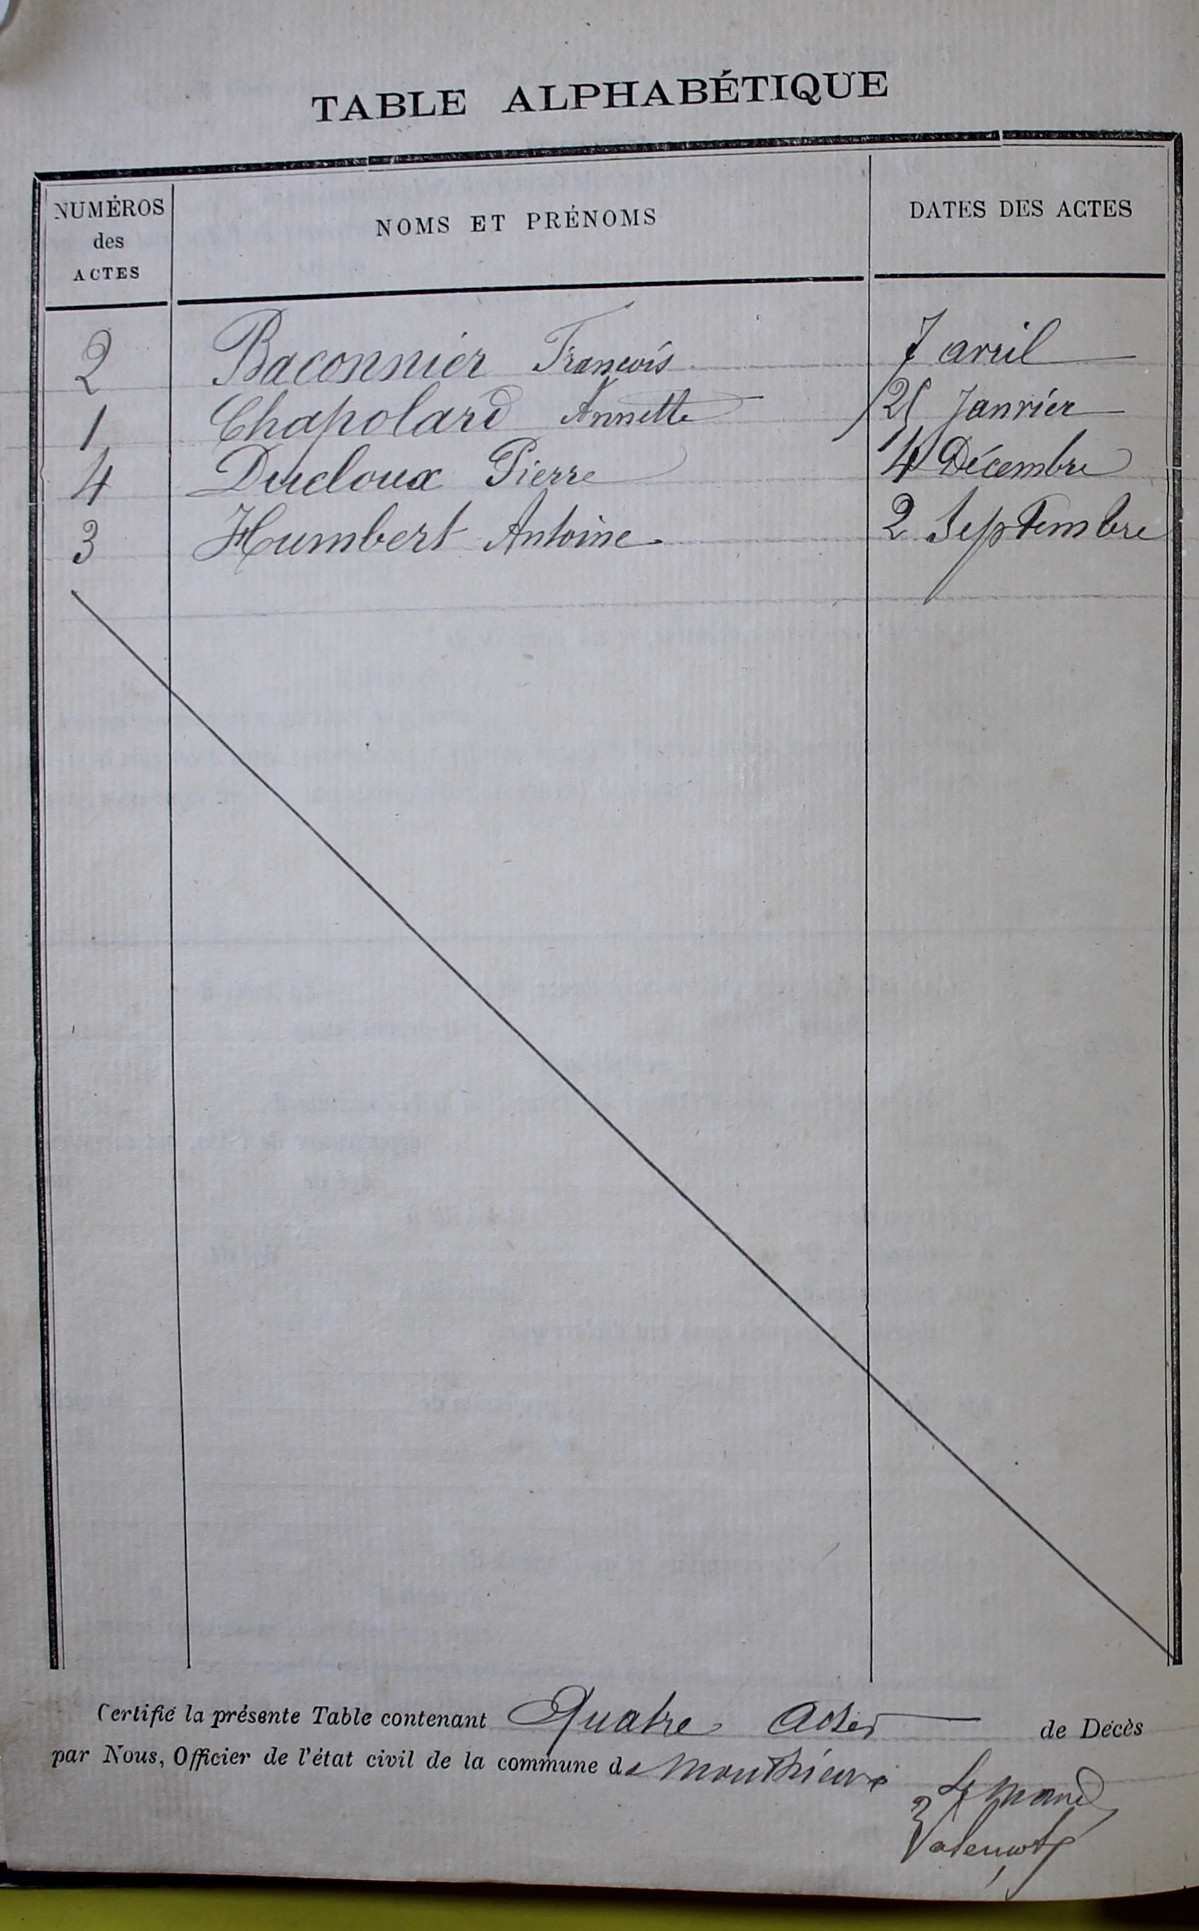 TABLE ALPHABÉTIQUE
NUMÉROS des ACTES NOMS ET PRÉNOMS DATES DES ACTES
2 Baconnier François 7 avril
1 Chapolard Annette 25 Janvier
4 Ducloux Pierre 4 Décembre
3 Humbert Antoine 2 Septembre
Certifié la présente Table contenant Quatre actes de Décès
par Nous, Officier de l'état civil de la commune de Monthieux